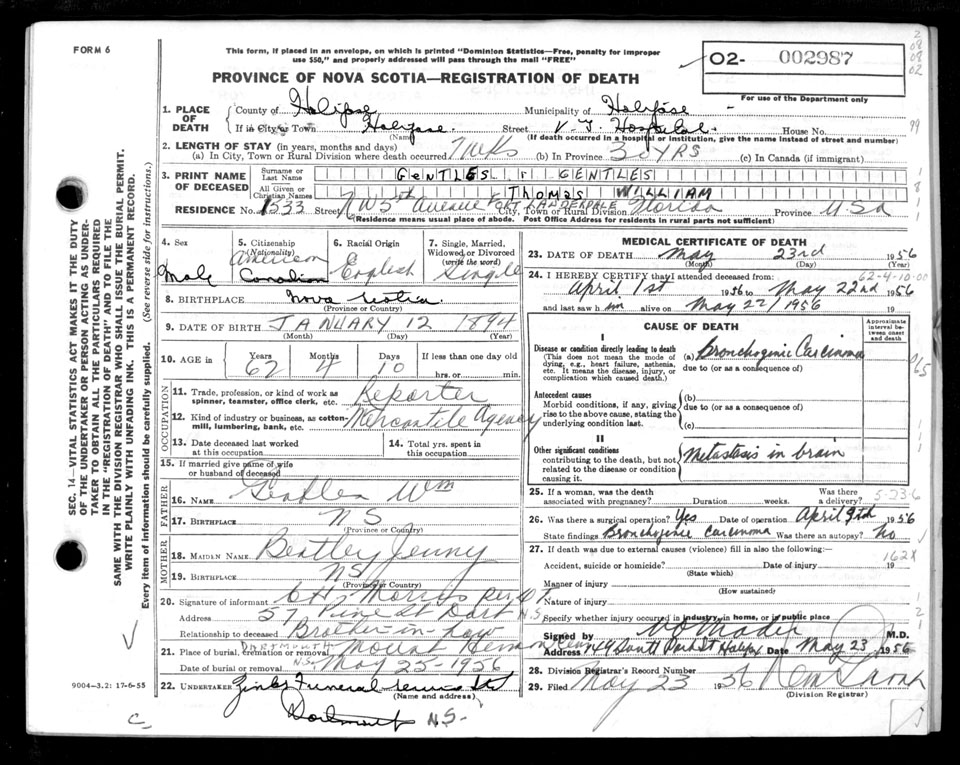 FORM 6
This form, if placed in an envelope, on which is printed "Dominion Statistics—Free, penalty for improper
use $50," and properly addressed will pass through the mail "FREE"
02- 002987
For use of the Department only
PROVINCE OF NOVA SCOTIA—REGISTRATION OF DEATH
1. PLACE OF DEATH
County of Halifax Municipality of Halifax
If in City or Town Halifax. Street V. G. Hospital. House No.
(Name) (If death occurred in a hospital or institution, give the name instead of street and number)
2. LENGTH OF STAY (in years, months and days)
(a) In City, Town or Rural Division where death occurred 7 WKS (b) In Province 30 YRS (c) In Canada (if immigrant)
3. PRINT NAME OF DECEASED
Surname or Last Name GENTLES GENTLES
All Given or Christian Names THOMAS WILLIAM
RESIDENCE No. 1533 Street N W 5th Avenue FORT LAUDERDALE City, Town or Rural Division Florida Province U.S.A
(Residence means usual place of abode. Post Office Address for residents in rural parts not sufficient)
4. Sex
Male
5. Citizenship (Nationality)
American
Canadian
6. Racial Origin
English
7. Single, Married, Widowed or Divorced (write the word)
Single
8. BIRTHPLACE Nova Scotia
(Province or Country)
9. DATE OF BIRTH JANUARY 12 1894
(Month) (Day) (Year)
10. AGE in Years 62 Months 4 Days 10 If less than one day old
hrs. or min.
OCCUPATION
11. Trade, profession, or kind of work as
spinner, teamster, office clerk, etc. Reporter
12. Kind of industry or business, as cotton-
mill, lumbering, bank, etc. Mercantile Agency
13. Date deceased last worked
at this occupation
14. Total yrs. spent in
this occupation
15. If married give name of wife
or husband of deceased
FATHER
16. NAME Gentles Wm
17. BIRTHPLACE NS
(Province or Country)
MOTHER
18. MAIDEN NAME Bentley Jenny
19. BIRTHPLACE NS
(Province or Country)
20. Signature of informant C H Morris per
Address 57 Pine St Dart N.S.
Relationship to deceased Brother-in-Law
21. Place of burial, cremation or removal DARTMOUTH N.S. Mount Hermon
Date of burial or removal May 25-1956
22. UNDERTAKER Funeral Service
(Name and address)
Dartmouth N.S.
9004-3.2: 17-6-55
C
MEDICAL CERTIFICATE OF DEATH
23. DATE OF DEATH May 23rd 1956
(Month) (Day) (Year)
24. I HEREBY CERTIFY that I attended deceased from: 62-4-10-00
April 1st 1956 to May 22nd 1956
and last saw him alive on May 22/1956 19
CAUSE OF DEATH
Approximate interval between onset and death
I
Disease or condition directly leading to death
(This does not mean the mode of
dying, e.g., heart failure, asthenia,
etc. It means the disease, injury, or
complication which caused death.)
(a) Bronchogenic Carcinoma
due to (or as a consequence of)
Antecedent causes
Morbid conditions, if any, giving
rise to the above cause, stating the
underlying condition last.
(b)
due to (or as a consequence of)
(c)
II
Other significant conditions
contributing to the death, but not
related to the disease or condition
causing it.
Metastasis in brain
25. If a woman, was the death
associated with pregnancy? Duration weeks. Was there a delivery? 5-23-6
26. Was there a surgical operation? Yes Date of operation April 9th 1956
State findings Bronchogenic Carcinoma Was there an autopsy? No
27. If death was due to external causes (violence) fill in also the following:— 162X
Accident, suicide or homicide? Date of injury 19
(State which)
Manner of injury
(How sustained)
Nature of injury
Specify whether injury occurred in industry, in home, or in public place
Signed by M.D.
Address South Park St Halifax Date May 23 1956
28. Division Registrar's Record Number
29. Filed May 23 1956
(Division Registrar)
SEC. 14—VITAL STATISTICS ACT MAKES IT THE DUTY
OF THE UNDERTAKER OR PERSON ACTING AS UNDER-
TAKER TO OBTAIN ALL THE PARTICULARS REQUIRED
IN THE "REGISTRATION OF DEATH" AND TO FILE THE
SAME WITH THE DIVISION REGISTRAR WHO SHALL ISSUE THE BURIAL PERMIT.
WRITE PLAINLY WITH UNFADING INK. THIS IS A PERMANENT RECORD.
Every item of information should be carefully supplied. (See reverse side for instructions.)